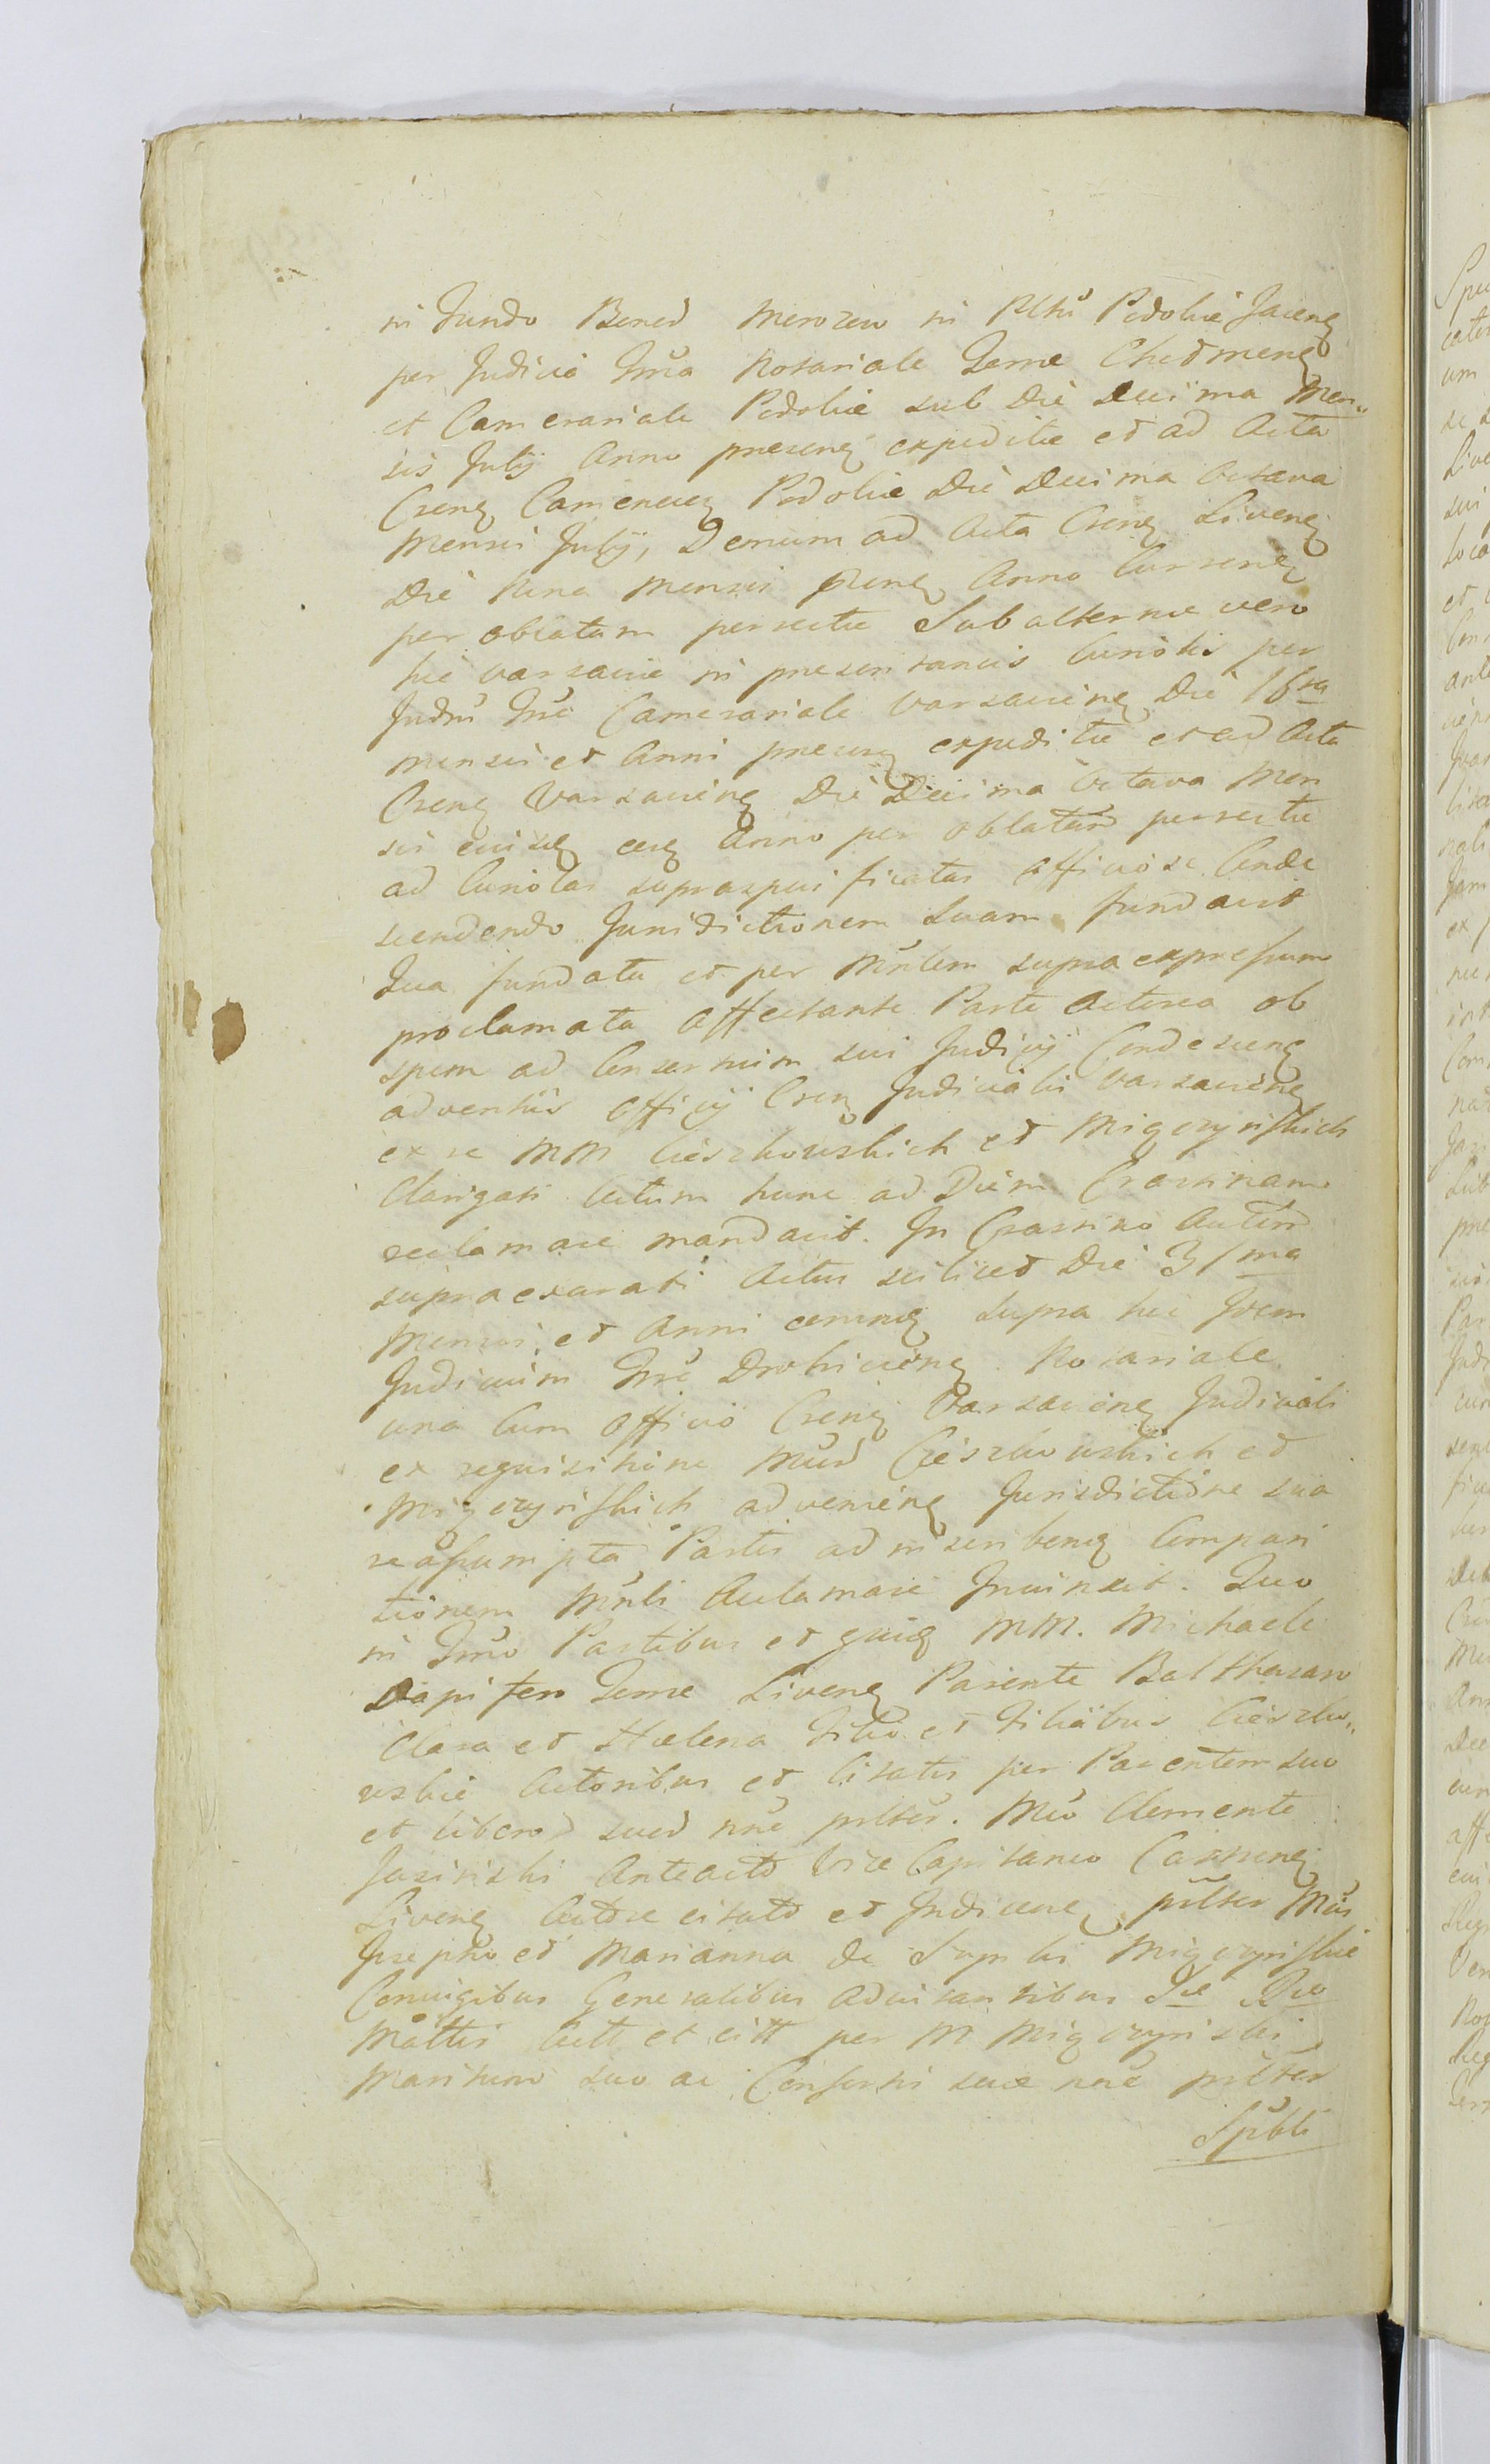 in Fundo Bonoꝝ Merozew in Pltu Podoliæ Jacenꝗ
per Judicia Trria Notariale Terræ Chelmenꝗ
et Camerariale Podoliæ sub Die Decima Men„
sis July Anno præsenꝗ expeditæ et ad Acta
Crenꝗ Camenecenꝗ Podoliæ Die Decima Octava
Mensis July, Demum ad Acta Crenꝗ Livenꝗ
Die Mensis Prnꝗ Anno Currenꝗ
per oblatam porrectæ Subalternæ vero
hic Varsaviæ in præsentaneis Curiolis per
Judm Trre Camerariale Varsavienꝗ Die 16ta
Mensis et Anni præsenꝗ expeditæ et ad Acta
Crenꝗ Varsavienꝗ Die Decima Octava Men
sis ejusdꝗ Anno per oblatam porrectæ
ad Curiolas supraspecificatas officiose Conde
scendendo Jurisdictionem suam fundavit
Qua fundata et per Mnlem supra expressum
proclamata affectante Parte Actorea ob
spem ad Consortium sui Judicij Condescenꝗ
adventus Officij Crenꝗ Judicialis Varsavienꝗ
ex re MM Cieszkowskich et Migoryiskich
Clarigati Actum hunc ad Diem Crastinam
reclamare mandavit. In Crastino Autem
supraexarati Actus scilicet Die 31ma
Mensis et Anni eorundꝗ supra hic Idem
Judicium Trre Drohicienꝗ Notariale
una Cum Officio Crenꝗ Varsavienꝗ Judiciali
ex requisitione Mcoꝝ Cieszkowskich et
Migoryiskich advenienꝗ Jurisdictione sua
reassumpta Partes ad inscribenꝗ Compari
tionem Mnli Acclamare Injunxit. Quo
in Trmo Partibus et quidꝗ MM. Michaele
Dapifero Terræ Livenꝗ Parente Balthasaro
Clara et Hælena Filio et Filiabus Cieszko„
wskie Actoribus et Citatis per Parentem suo
et liberoꝝ suoꝝ nne plter. Mco Clemente
Jasinski Anteacto Vice Capitaneo Castrenꝗ
Livenꝗ Actore citato et Inducenꝗ pltter Mcis
Josepho et Marianna de Migoryiskie
Conjugibus Generalibus Advitantibus Sæ Ræ
Mattis Actt et citt per M Migoryiski
Maritum suo ac Consortis suæ nne pltter
Spbli